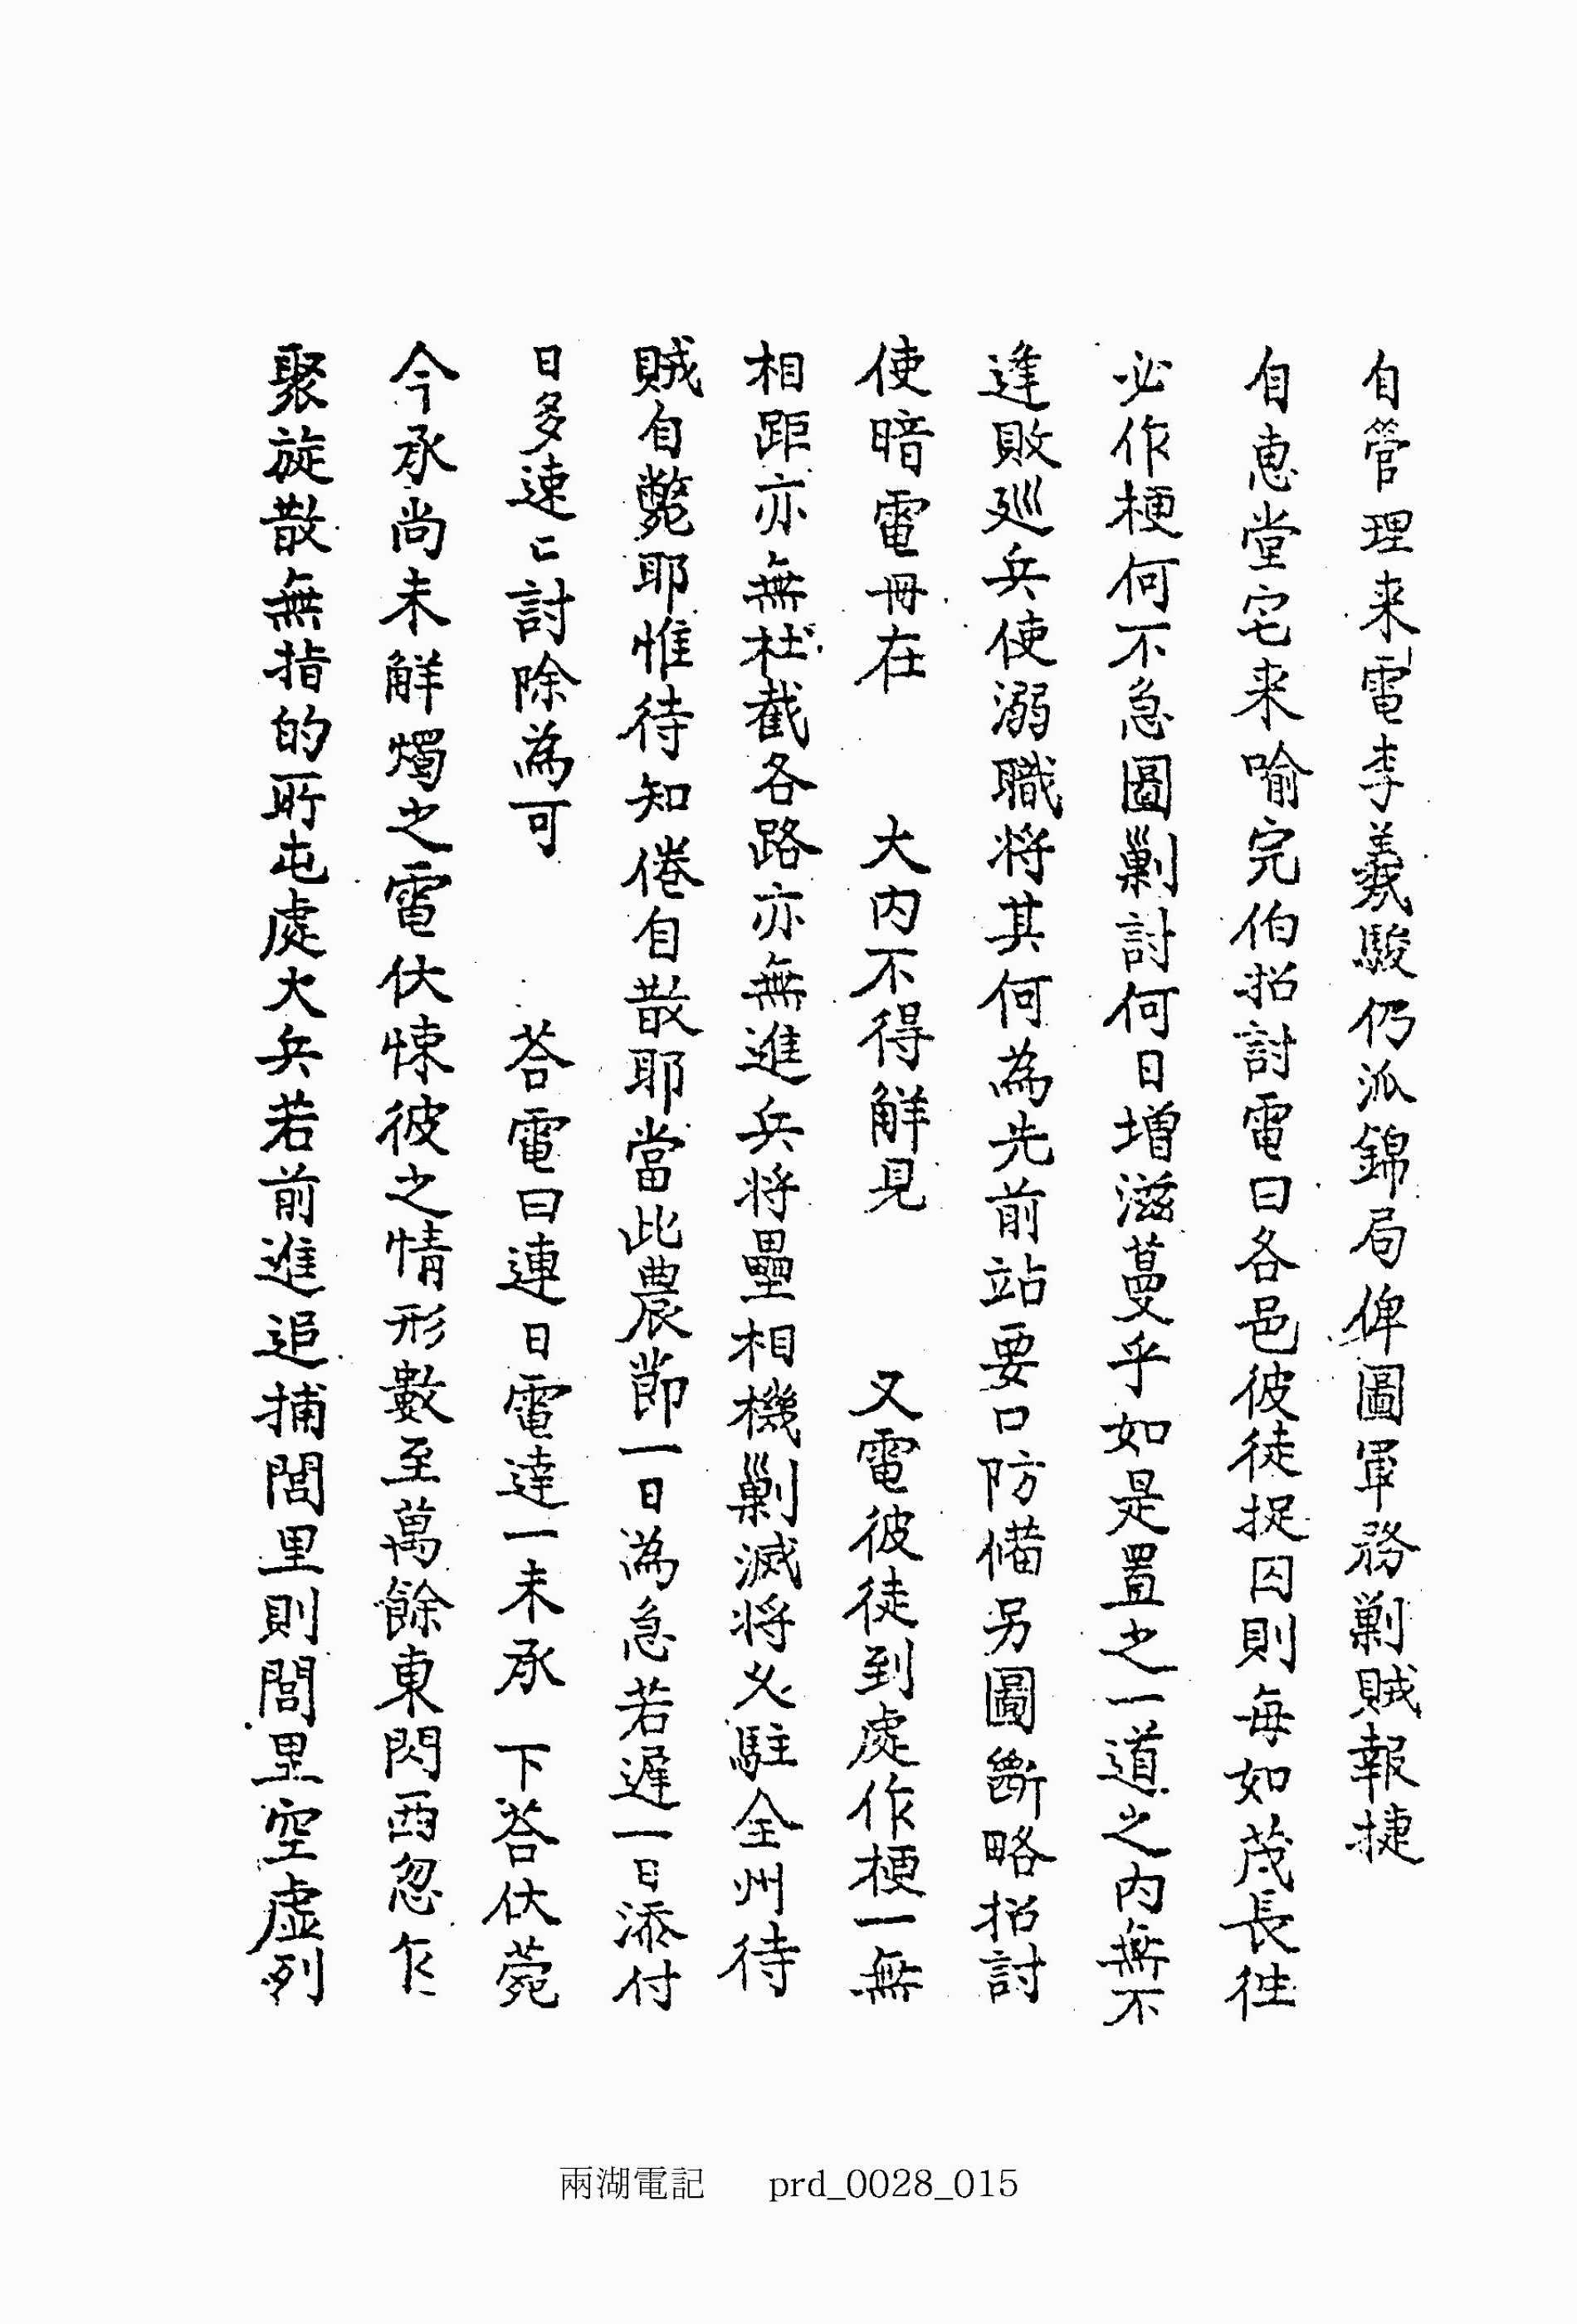 自管理来電李義駿仍派錦局俾圖軍務剿賊報捷
自惠堂宅来喻完伯招討電曰各邑彼徒捉囚則每如茂長徃
必作梗何不急圖剿討何日增滋蔓乎如是置之一道之內無不
逢敗巡兵使溺職将其何為先前站要口防備另圖斷略招討
使暗電冊在　大內不得解見　又電彼徒到處作梗一無
相距亦無杜截各路亦無進兵将壘相機剿滅将必駐全州待
賊自斃耶惟待知倦自散耶當此農節一日為急若遲一日添付
日多速〻討除為可　荅電曰連日電達一未承　下荅伏菀
今承尚未解燭之電伏悚彼之情形數至萬餘東閃西忽乍
聚旋散無指的所屯處大兵若前進追捕閭里則閭里空虛列
兩湖電記　prd_0028_015